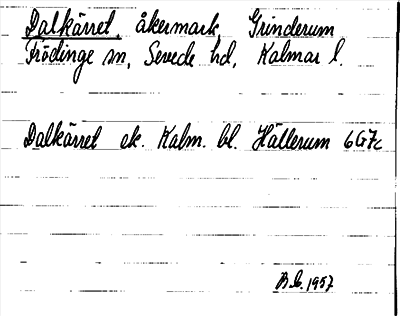 Dalkärret, åkermark, Grinderum
Frödinge sn, Sevede hd, Kalmar l.
Dalkärret ek. Kalm. bl. Hällerum 6G7c
B.L. 1957